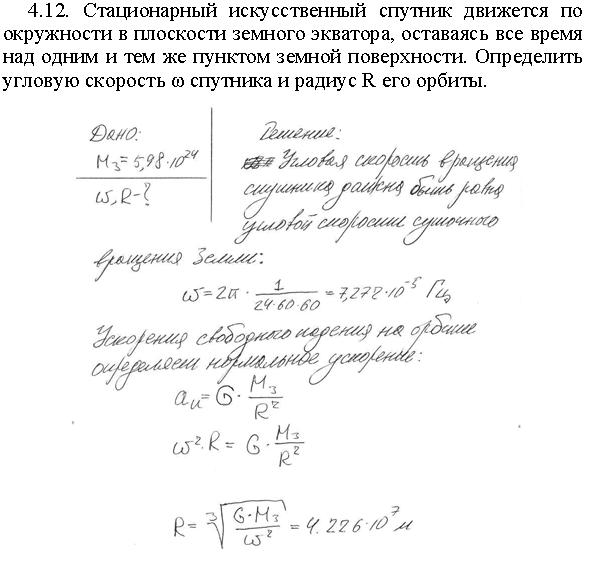 4.12. Стационарный искусственный спутник движется по
окружности в плоскости земного экватора, оставаясь все время
над одним и тем же пунктом земной поверхности. Определить
угловую скорость ω спутника и радиус R его орбиты.
Дано:
M₃ = 5,98·10²⁴
ω, R - ?
Решение:
Угловая скорость вращения
спутника должна быть равна
угловой скорости суточного
вращения Земли:
ω = 2π · 1/(24·60·60) = 7,272·10⁻⁵ Гц
Ускорения свободного падения на орбите
определяет нормальное ускорение:
aₙ = G · M₃/R²
ω²·R = G · M₃/R²
R = ∛(G·M₃/ω²) = 4.226·10⁷ м